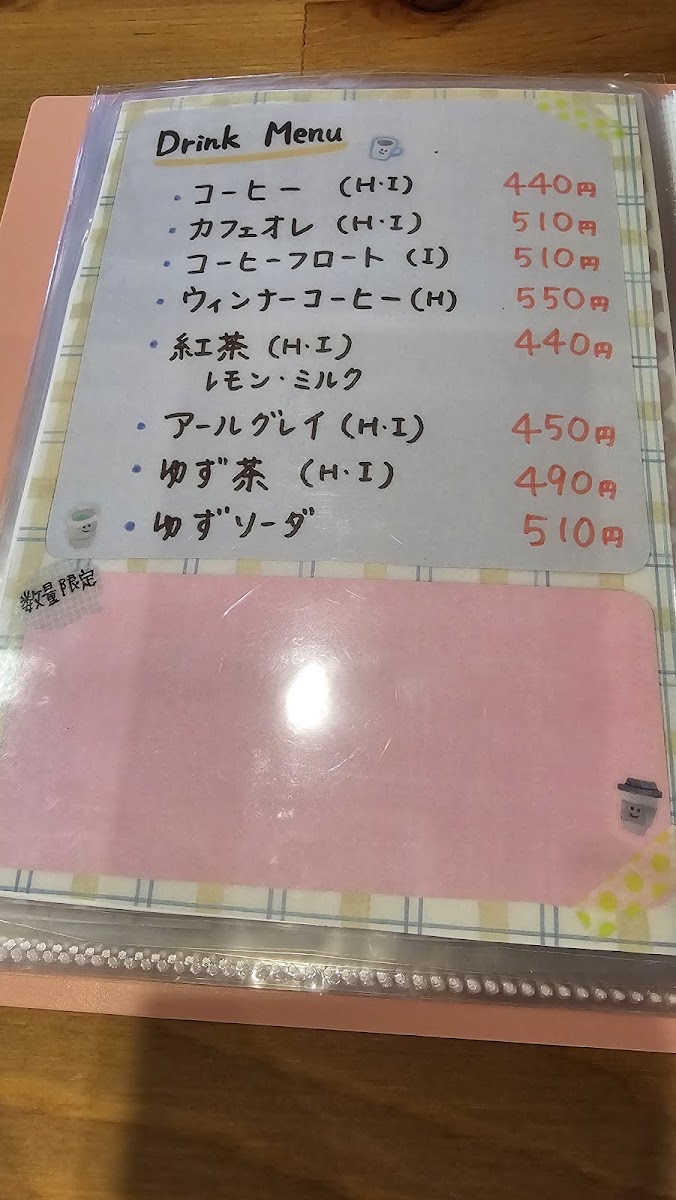 Drink Menu
・コーヒー (H・I) 440円
・カフェオレ (H・I) 510円
・コーヒーフロート (I) 510円
・ウィンナーコーヒー(H) 550円
・紅茶 (H・I) 440円
レモン・ミルク
・アールグレイ (H・I) 450円
・ゆず茶 (H・I) 490円
・ゆずソーダ 510円
数量限定